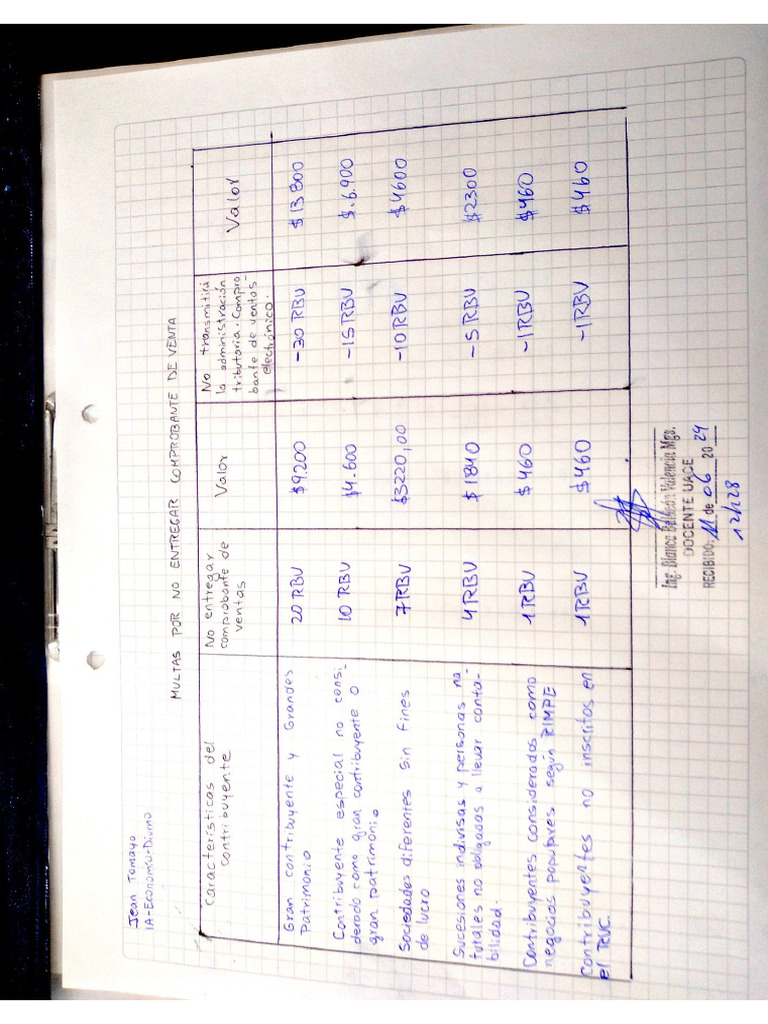 Jean Tamayo
1A-Economía-Diurno
MULTAS POR NO ENTREGAR COMPROBANTE DE VENTA
Características del
contribuyente
No entregar
comprobante de
ventas
Valor
No transmitirá
la administración
tributaria. Compro
bante de ventas-
electrónico.
Valor
Gran contribuyente y Grandes
Patrimonio
20 RBU
$9.200
-30 RBU
$13800
Contribuyente especial no consi
derado como gran contribuyente o
gran patrimonio
10 RBU
$4.600
-15 RBU
$.6.900
Sociedades diferentes sin fines
de lucro
7 RBU
$3220,00
-10 RBU
$4600
Sucesiones indivisas y personas na
turales no obligadas a llevar conta-
bilidad.
4 RBU
$1840
-5 RBU
$2300
Contribuyentes considerados como
negocios populares según RIMPE
1 RBU
$460
-1 RBU
$460
Contribuyentes no inscritos en
el RUC.
1 RBU
$460
-1 RBU
$460
Ing. Valencia Mgs.
DOCENTE UACE
RECIBIDO: 11 de 06 2024
12h28